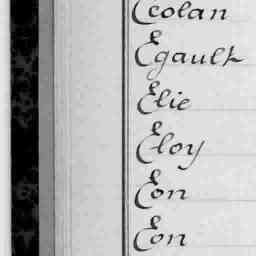 Ecolan
Egault
Elie
Eloy
Eon
Eon